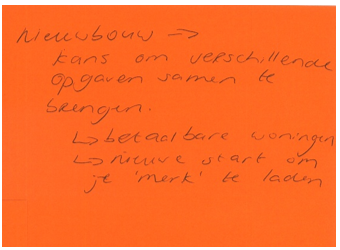 Nieuwbouw →
kans om verschillende
opgaven samen te
brengen.
↳ betaalbare woningen
↳ nieuwe start om
je 'merk' te laden